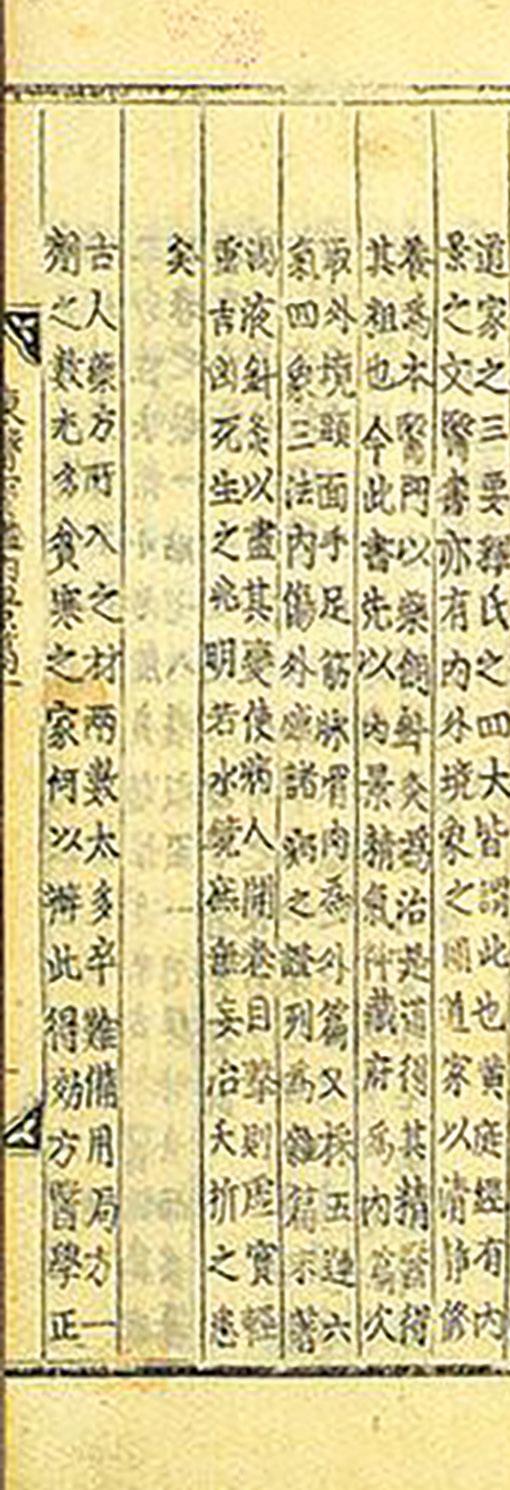 道家之三要釋氏之四大皆謂此也黃庭經有內
景之文醫書亦有內外境象之圖道家以清靜修
養爲本醫門以藥餌針灸爲治是道得其精醫得
其粗也今此書先以內景精氣神藏府爲內篇次
取外境頭面手足筋脉骨肉爲外篇又採五運六
氣四象三法內傷外感諸病之證列爲雜篇末著
湯液針灸以盡其變使病人開卷目擊則虛實輕
重吉凶死生之兆明若水鏡庶無妄治夭折之患
矣
古人藥方所入之材兩數太多卒難備用局方一
劑之數尤多貧寒之家何以辦此得効方醫學正